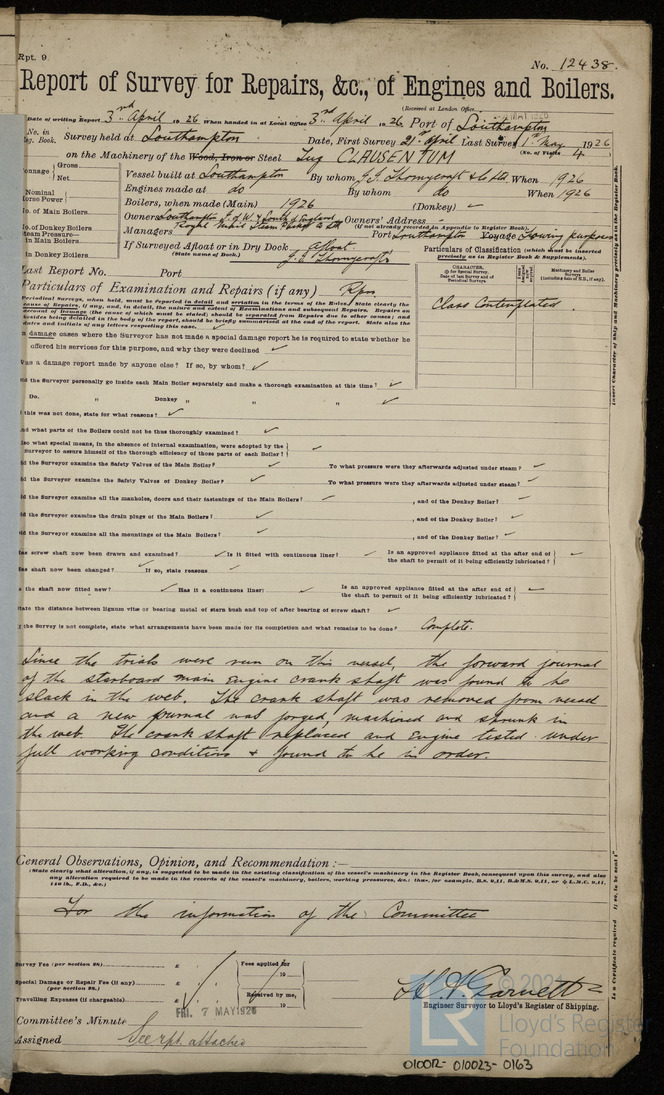 Rpt. 9.
No. 12438.
Report of Survey for Repairs, &c., of Engines and Boilers.
(Received at London Office
Date of writing Report 3rd April 1926 When handed in at Local Office 3rd April 1926 Port of Southampton
No. in Reg. Book. Survey held at Southampton Date, First Survey 21st april Last Survey 1st May 1926
(No. of Visits 4)
on the Machinery of the Wood, Iron or Steel Tug CLAUSENTUM
Tonnage Gross Net
Vessel built at Southampton By whom J.I. Thornycroft & Co Ltd When 1926
Engines made at do By whom do When 1926
Nominal Horse Power
Boilers, when made (Main) 1926 (Donkey) -
No. of Main Boilers
Owners Southampton I. of W. & South of England Royal Mail Steam Packet Co Ltd Owners' Address
(if not already recorded in Appendix to Register Book).
No. of Donkey Boilers
Managers
Port Southampton Voyage Towing purposes
Steam Pressure—
in Main Boilers
If Surveyed Afloat or in Dry Dock Afloat
(State name of Dock.) J.I. Thornycroft's
in Donkey Boilers
Particulars of Classification (which must be inserted precisely as in Register Book & Supplements).
Last Report No. Port
Particulars of Examination and Repairs (if any) Rprs
CHARACTER.
Class Contemplated.
Periodical Surveys, when held, must be reported in detail and seriatim in the terms of the Rules. State clearly the
cause of Repairs, if any, and, in detail, the nature and extent of Examinations and subsequent Repairs. Repairs on
account of Damage (the cause of which must be stated) should be separated from Repairs due to other causes; and
besides being detailed in the body of the report, should be briefly summarised at the end of the report. State also the
dates and initials of any letters respecting this case.
In damage cases where the Surveyor has not made a special damage report he is required to state whether he
offered his services for this purpose, and why they were declined
Was a damage report made by anyone else? If so, by whom?
Did the Surveyor personally go inside each Main Boiler separately and make a thorough examination at this time?
Do. " Donkey " " "
If this was not done, state for what reasons?
And what parts of the Boilers could not be thoroughly examined?
Also what special means, in the absence of internal examination, were adopted by the
Surveyor to assure himself of the thorough efficiency of those parts of each Boiler?
Did the Surveyor examine the Safety Valves of the Main Boiler? To what pressure were they afterwards adjusted under steam?
Did the Surveyor examine the Safety Valves of Donkey Boiler? To what pressure were they afterwards adjusted under steam?
Did the Surveyor examine all the manholes, doors and their fastenings of the Main Boilers? , and of the Donkey Boiler?
Did the Surveyor examine the drain plugs of the Main Boilers? , and of the Donkey Boiler?
Did the Surveyor examine all the mountings of the Main Boilers? , and of the Donkey Boiler?
Has screw shaft now been drawn and examined? Is it fitted with continuous liner? Is an approved appliance fitted at the after end of the shaft to permit of it being efficiently lubricated?
Has shaft now been changed? If so, state reasons
Is the shaft now fitted new? Has it a continuous liner? Is an approved appliance fitted at the after end of the shaft to permit of it being efficiently lubricated?
State the distance between lignum vitæ or bearing metal of stern bush and top of after bearing of screw shaft?
If the Survey is not complete, state what arrangements have been made for its completion and what remains to be done? Complete.
Since the trials were run on this vessel, the forward journal
of the starboard main Engine crank shaft was found to be
slack in the web. The crank shaft was removed from vessel
and a new journal was forged, machined and shrunk in
the web. The crank shaft replaced and Engine tested under
full working conditions & found to be in order.
General Observations, Opinion, and Recommendation:—
(State clearly what alteration, if any, is suggested to be made in the existing classification of the vessel's machinery in the Register Book, consequent upon this survey, and also
any alteration required to be made in the records of the vessel's machinery, boilers, working pressures, &c.: thus, for example, B.S. 9,11, B.&M.S. 9,11, or L.M.C. 9,11,
140 lb., F.D., &c.)
For the information of the Committee
Survey Fee (per section 28) £
Special Damage or Repair Fee (if any) (per section 28.) £
Travelling Expenses (if chargeable) £
Fees applied for
19
Received by me,
19
Engineer Surveyor to Lloyd's Register of Shipping.
FRI. 7 MAY 1926
Committee's Minute
Assigned See rpt attached
© 2021
LR
Lloyd's Register
Foundation
010012-010023-0163
Insert Character of Ship and Machinery precisely as in the Register Book.
Is a Certificate required